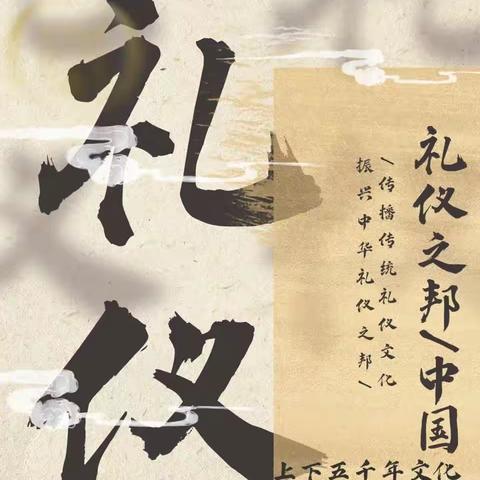 礼仪
礼仪之邦\中国
\传播传统礼仪文化
振兴中华礼仪之邦\
上下五千年文化